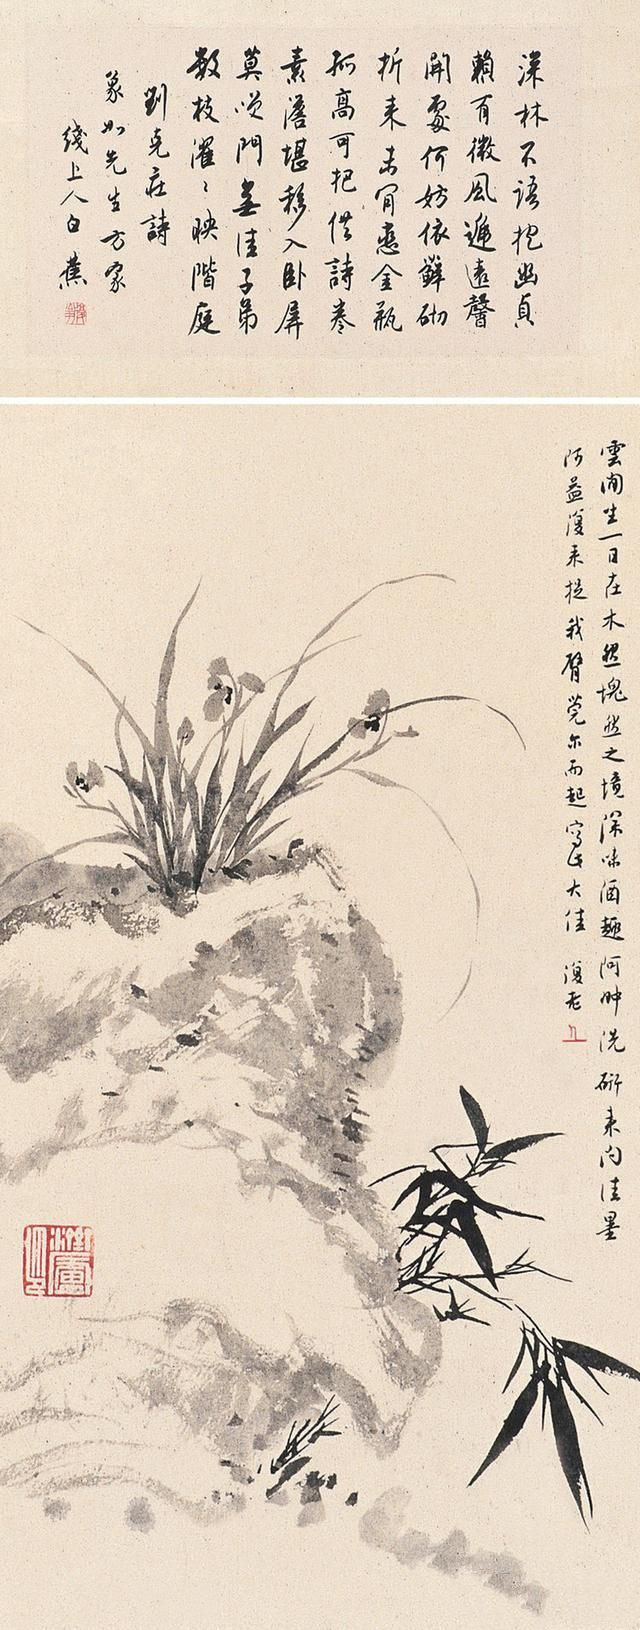 深林不語抱幽貞
賴有微風遞遠馨
開處何妨依蘚砌
折來未肎戀金瓶
孤高可挹供詩卷
素澹堪移入臥屏
莫嘆門無佳子弟
數枝濯〻映階庭
劉克莊詩
象如先生方家
綫上人白蕉
雲間生一日在木與塊然之境深味酒趣阿冲洗硏來內佳墨
阿益復來捉我臂莞尔而起寫此大佳 復老